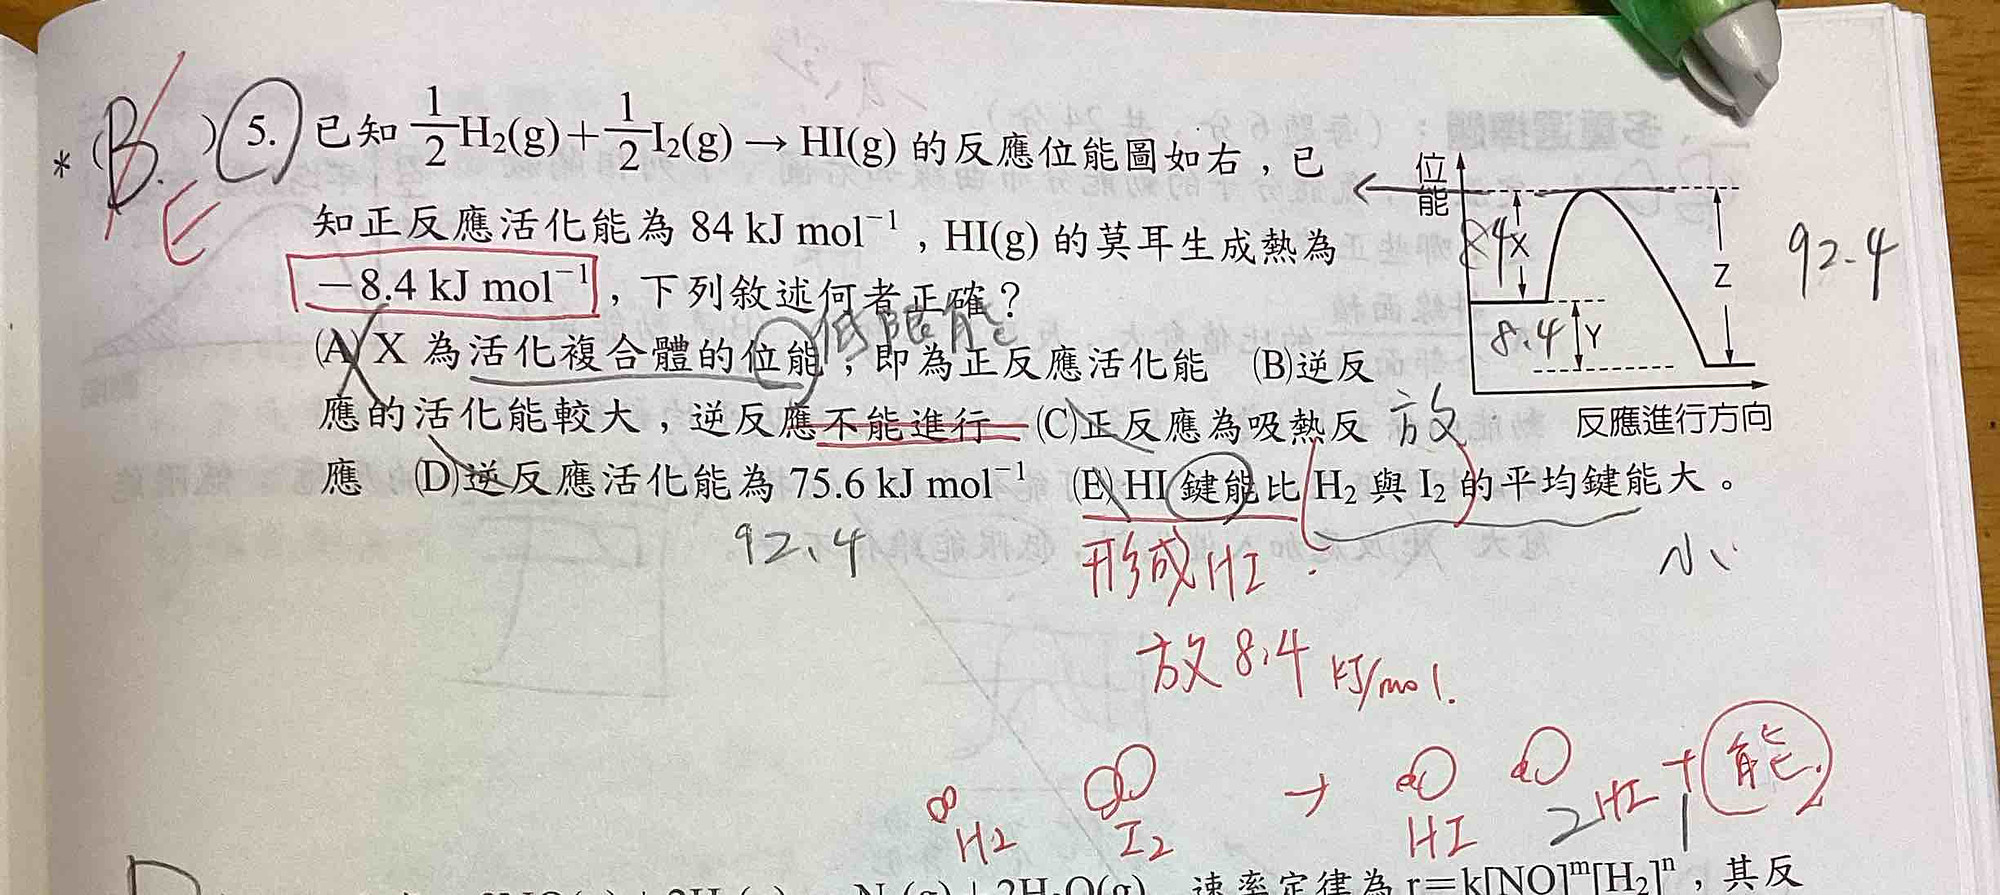 *(B.)5. 已知 1/2 H₂(g)+1/2 I₂(g)→HI(g) 的反應位能圖如右，已
E
知正反應活化能為 84 kJ mol⁻¹，HI(g) 的莫耳生成熱為
−8.4 kJ mol⁻¹，下列敘述何者正確？
低限能
(A) X 為活化複合體的位能，即為正反應活化能 (B)逆反
應的活化能較大，逆反應不能進行 (C)正反應為吸熱反
放
應 (D)逆反應活化能為 75.6 kJ mol⁻¹ (E) HI 鍵能比 H₂ 與 I₂ 的平均鍵能大。
92.4
小
位能
84 X
Z
92.4
8.4 Y
反應進行方向
形成 HI
放 8.4 kJ/mol.
H2 I2 → HI 2HI + 能
速率定律為 r=k[NO]ᵐ[H₂]ⁿ，其反